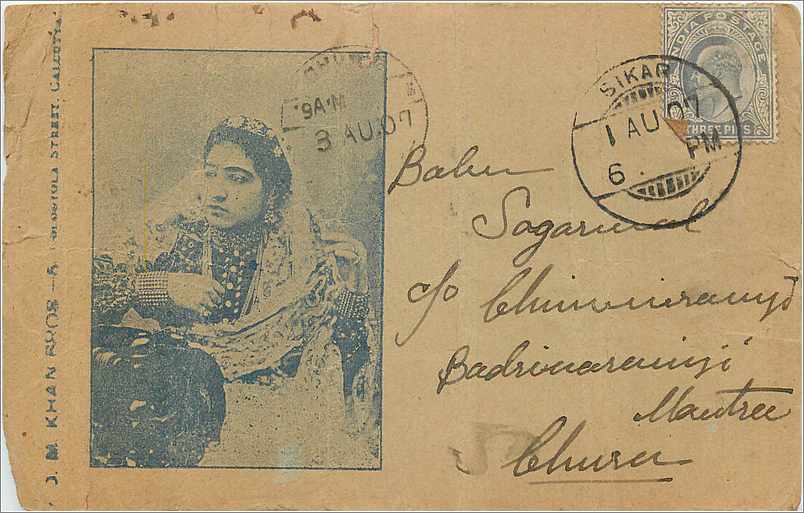 J. M. KHAN BROS—5 COLOOTOLA STREET, CALCUTTA.
CHURU
9 A.M
3 AU.07
SIKAR
1 AU 07
6 PM
INDIA POSTAGE
THREE PIES
Babu
Sagarmal
c/o Chimniramji
Badrinarainji
Mantree
Churu